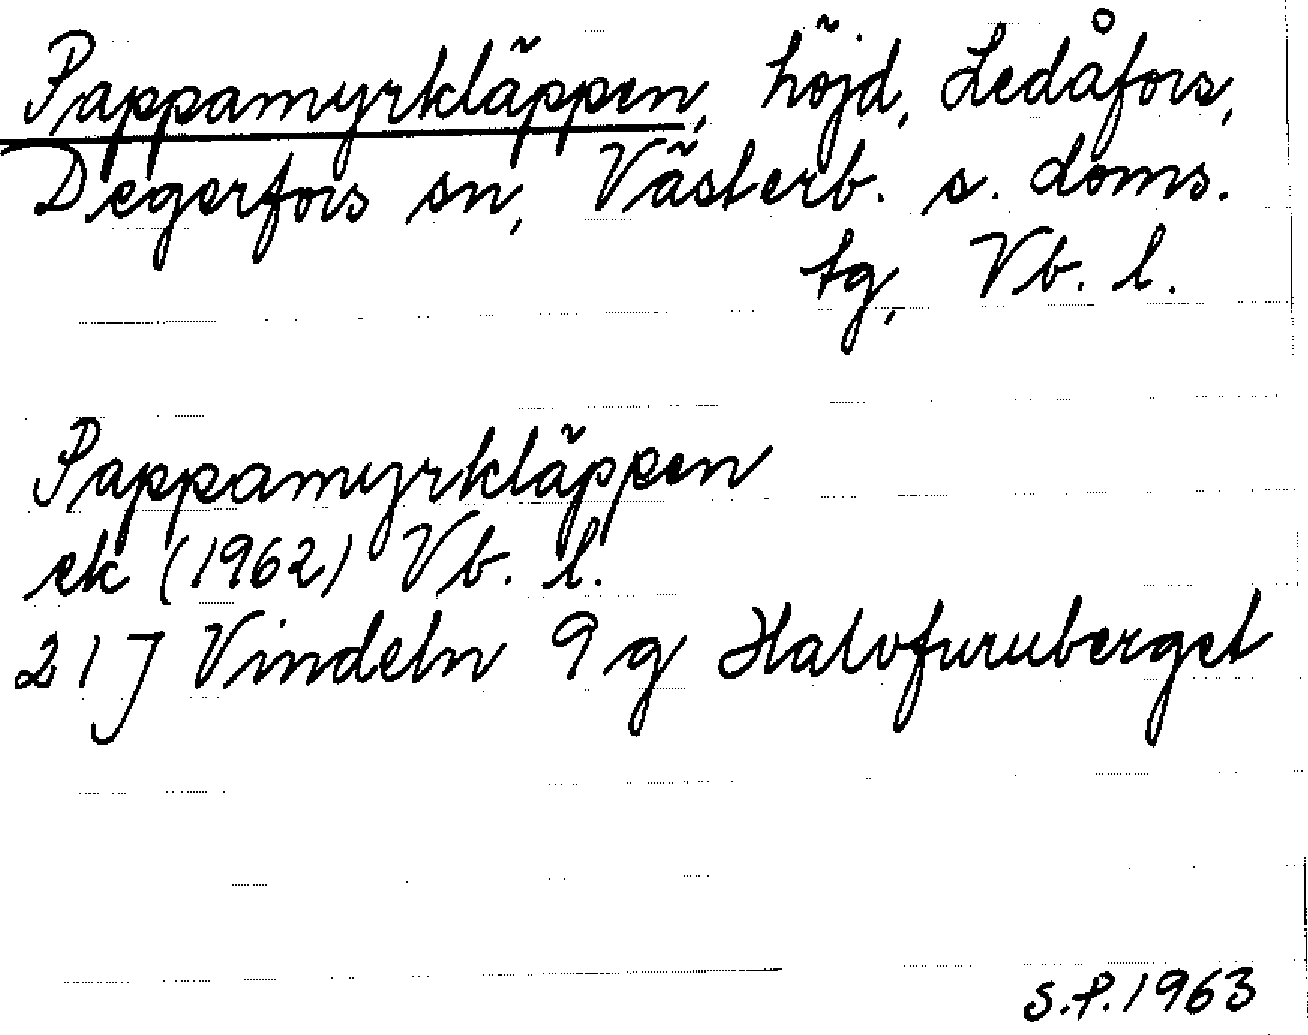 Pappamyrkläppen, höjd, Ledåfors,
Degerfors sn, Västerb. s. doms.
tg, Vb. l.
Pappamyrkläppen
ek (1962) Vb. l.
21J Vindeln 9 g Halvfuruberget
S.P. 1963